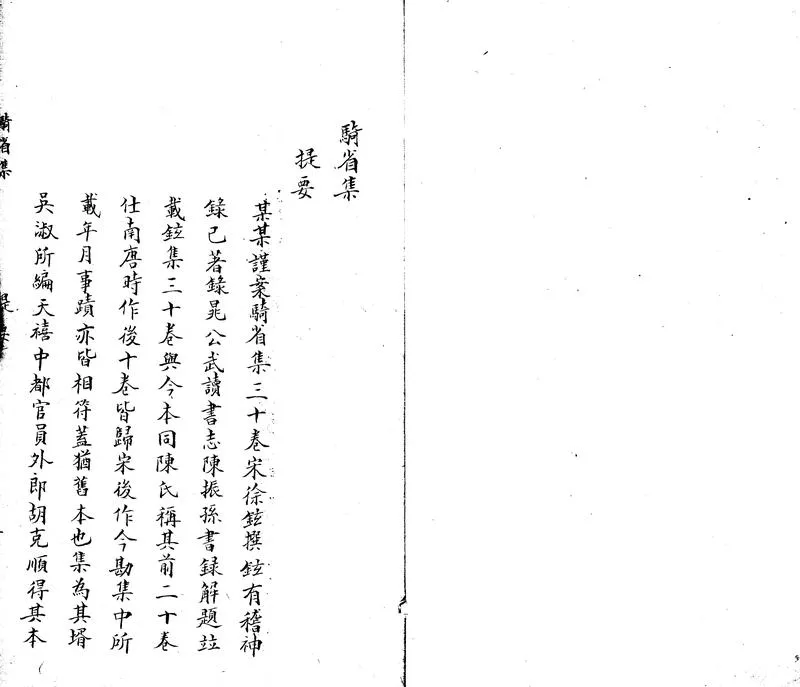 騎省集
提要
某某謹案騎省集三十卷宋徐鉉撰鉉有稽神
錄已著錄晁公武讀書志陳振孫書録解題竝
載鉉集三十卷與今本同陳氏稱其前二十卷
仕南唐時作後十卷皆歸宋後作今勘集中所
載年月事蹟亦皆相符蓋猶舊本也集為其壻
吳淑所編天禧中都官員外郎胡克順得其本
騎省集
提要